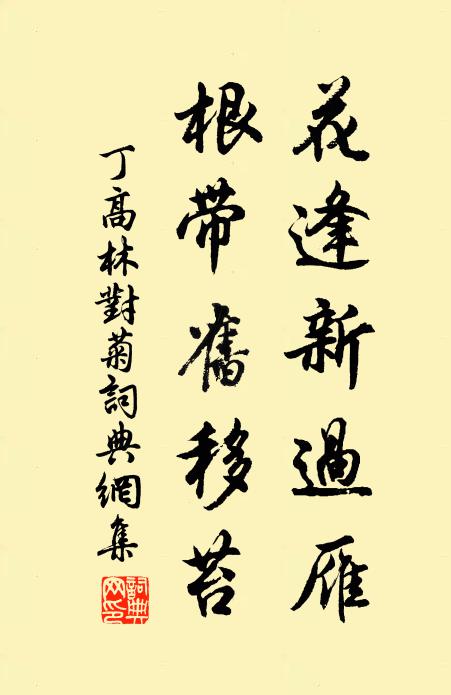 花逢新過雁
根帶舊移苔
丁高林對菊詞典網集